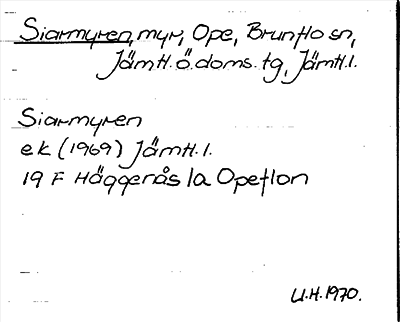 Siarmyren, myr, Ope, Brunflo sn,
Jämtl. ö. doms. tg, Jämtl. l.
Siarmyren
ek (1969) Jämtl. l.
19 F Häggenås 1a Opeflon
U.H. 1970.